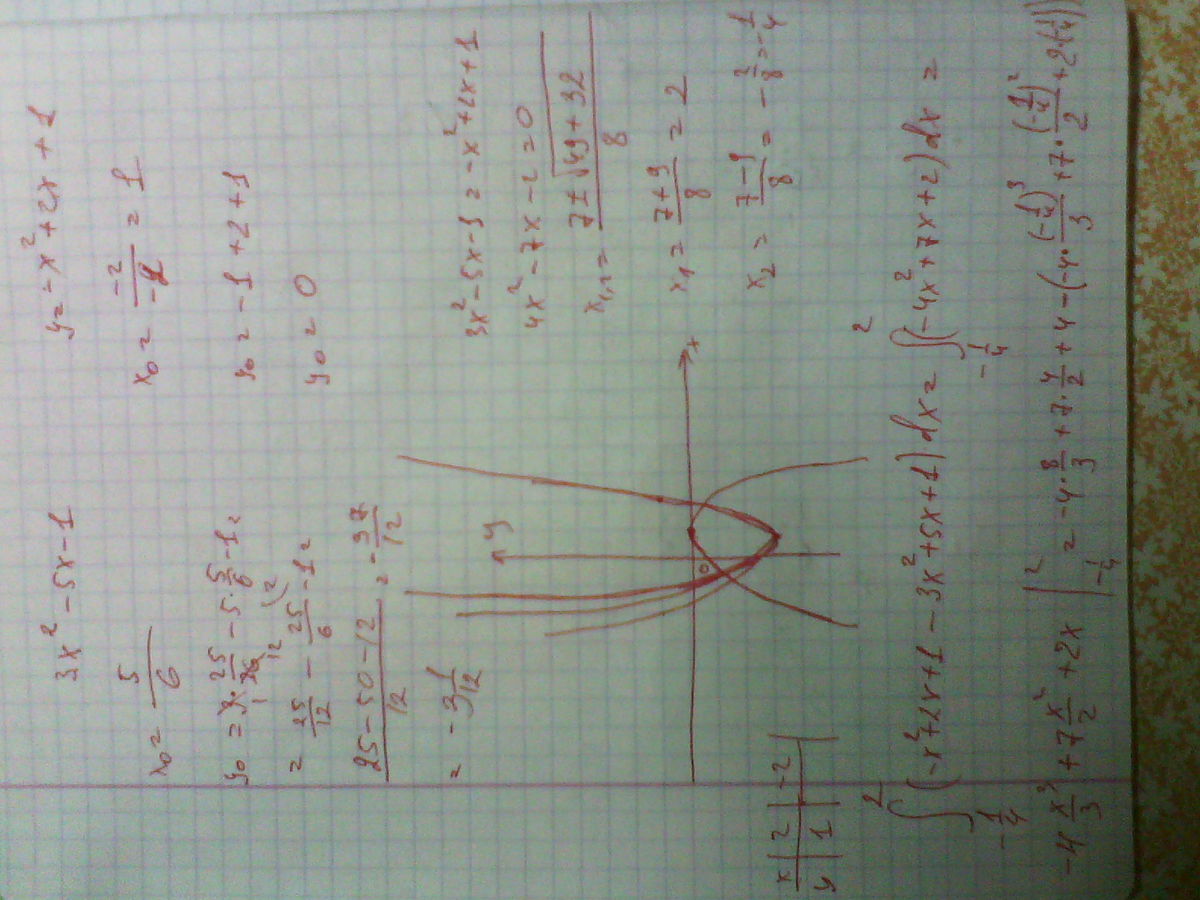 3x² - 5x - 1
x₀ = 5/6
y₀ = 3·25/36 - 5·5/6 - 1 =
= 25/12 - 25/6 - 1 =
(25 - 50 - 12)/12 = -37/12
= -3 1/12
y = -x² + 2x + 1
x₀ = -2/-2 = 1
y₀ = -1 + 2 + 1
y₀ = 0
3x² - 5x - 1 = -x² + 2x + 1
4x² - 7x - 2 = 0
x₁,₂ = (7 ± √(49 + 32))/8
x₁ = (7 + 9)/8 = 2
x₂ = (7 - 9)/8 = -2/8 = -1/4
y
x
0
x | 2 | -2
y | 1 |
∫_{-1/4}^{2} (-x² + 2x + 1 - 3x² + 5x + 1) dx = ∫_{-1/4}^{2} (-4x² + 7x + 2) dx =
-4 x³/3 + 7 x²/2 + 2x |_{-1/4}^{2} = -4·8/3 + 7·4/2 + 4 - (-4·(-1/4)³/3 + 7·(-1/4)²/2 + 2·(-1/4))